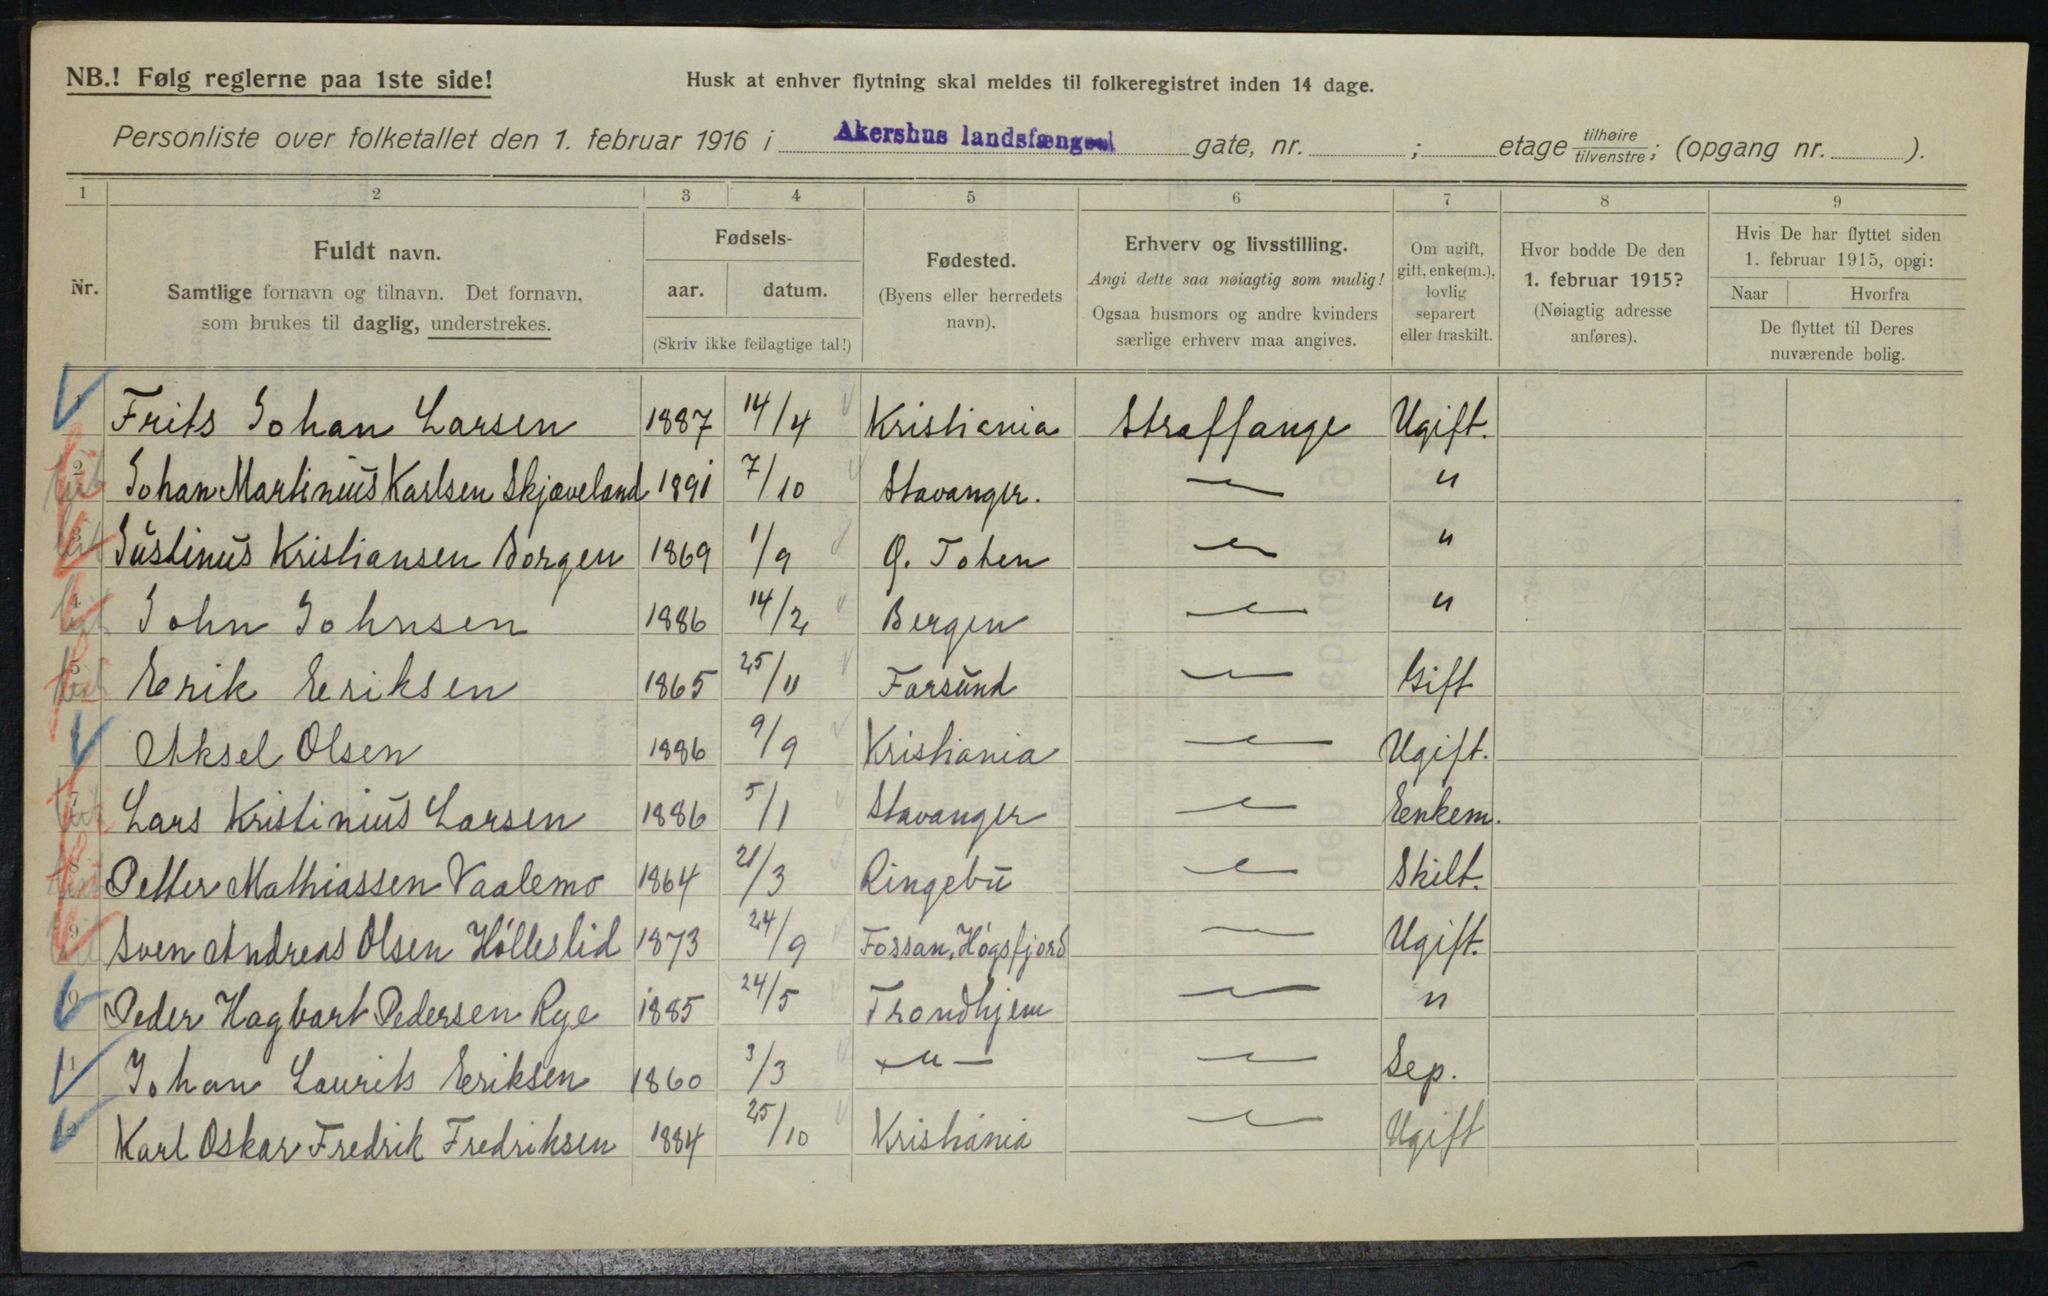 NB.! Følg reglerne paa 1ste side!
Husk at enhver flytning skal meldes til folkeregistret inden 14 dage.
Personliste over folketallet den 1. februar 1916 i Akershus landsfængsel gate, nr. ; etage tilhøire/tilvenstre; (opgang nr. ).
1 2 3 4 5 6 7 8 9
Nr.
Fuldt navn.
Samtlige fornavn og tilnavn. Det fornavn,
som brukes til daglig, understrekes.
Fødsels-
aar. datum.
(Skriv ikke feilagtige tal!)
Fødested.
(Byens eller herredets
navn).
Erhverv og livsstilling.
Angi dette saa nøiagtig som mulig!
Ogsaa husmors og andre kvinders
særlige erhverv maa angives.
Om ugift,
gift, enke(m.),
lovlig
separert
eller fraskilt.
Hvor bodde De den
1. februar 1915?
(Nøiagtig adresse
anføres).
Hvis De har flyttet siden
1. februar 1915, opgi:
Naar Hvorfra
De flyttet til Deres
nuværende bolig.
Frits Johan Larsen 1887 14/4 Kristiania Straffange Ugift.
2 Johan Martinius Karlsen Skjæveland 1891 7/10 Stavanger. — "
3 Justinus Kristiansen Borgen 1869 1/9 Ø. Toten — "
4 John Johnsen 1886 14/2 Bergen — "
5 Erik Eriksen 1865 25/11 Farsund — Gift
Aksel Olsen 1886 9/9 Kristiania — Ugift.
7 Lars Kristinius Larsen 1886 5/1 Stavanger — Eenkem.
8 Petter Mathiassen Vaalemo 1864 21/3 Ringebu — Skilt.
9 Sven Andreas Olsen Hölleslid 1873 24/9 Fossan, Högsfjord — Ugift.
Peder Hagbart Pedersen Rye 1885 24/5 Trondhjem — "
11 Johan Laurits Eriksen 1860 3/3 — " — — Sep.
Karl Oskar Fredrik Fredriksen 1884 25/10 Kristiania — Ugift